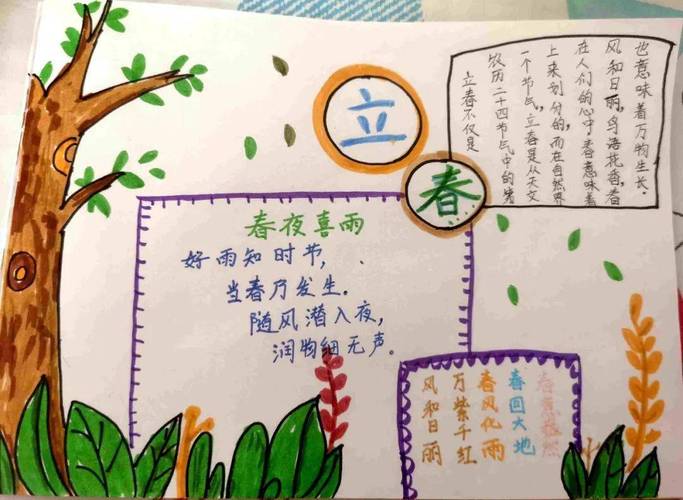 立
春
立春不仅是
农历二十四节气中的第
一个节气，立春是从天文
上来划分的，而在自然界
在人们的心中，春意味着
风和日丽，鸟语花香，春
也意味着万物生长。
春夜喜雨
好雨知时节，
当春乃发生。
随风潜入夜，
润物细无声。
春意盎然
春回大地
春风化雨
万紫千红
风和日丽